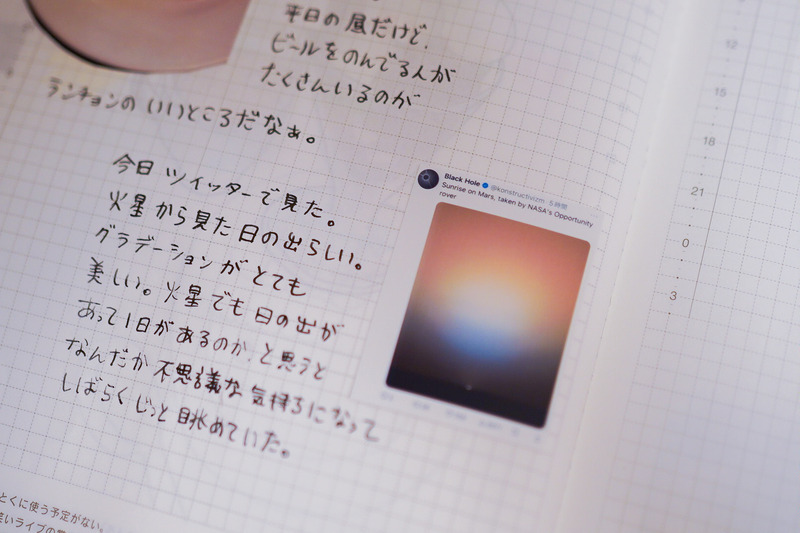 平日の昼だけど、
ビールをのんでる人が
たくさんいるのが
ランチョンの いいところだなぁ。
今日 ツイッターで見た。
火星 から見た 日の出らしい。
グラデーションが とても
美しい。火星 でも 日の出が
あって 1日が あるのか、と思うと
なんだか 不思議な 気持ちになって
しばらく じっと 眺めていた。
Black Hole @konstructivizm 5時間
Sunrise on Mars, taken by NASA's Opportunity
rover
12
15
18
21
0
3
とくに使う予定がない。
笑いライブの